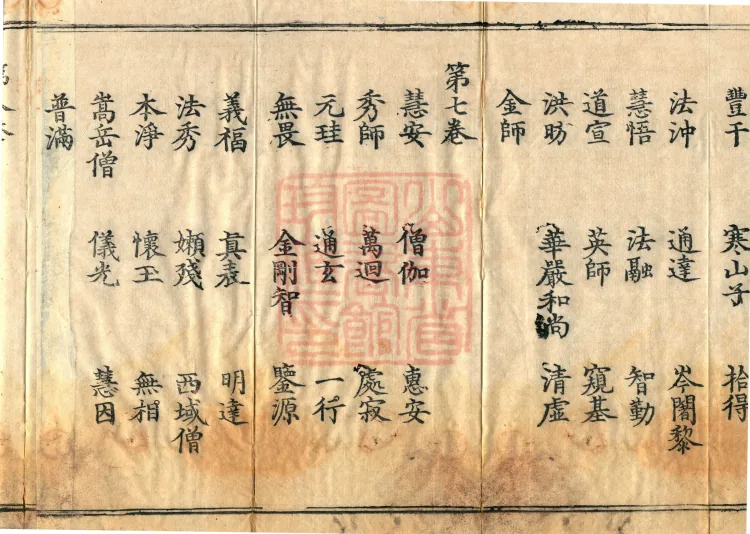 豐干 寒山子 拾得
法沖 通達 岑闍黎
慧悟 法融 智勤
道宣 英師 窺基
洪昉 華嚴和尚 清虛
金師
第七卷
慧安 僧伽 惠安
秀師 萬迴 處寂
元珪 通玄 一行
無畏 金剛智 鑒源
義福 眞表 明達
法秀 嬾殘 西域僧
本淨 懷玉 無相
嵩岳僧 儀光 慧因
普滿